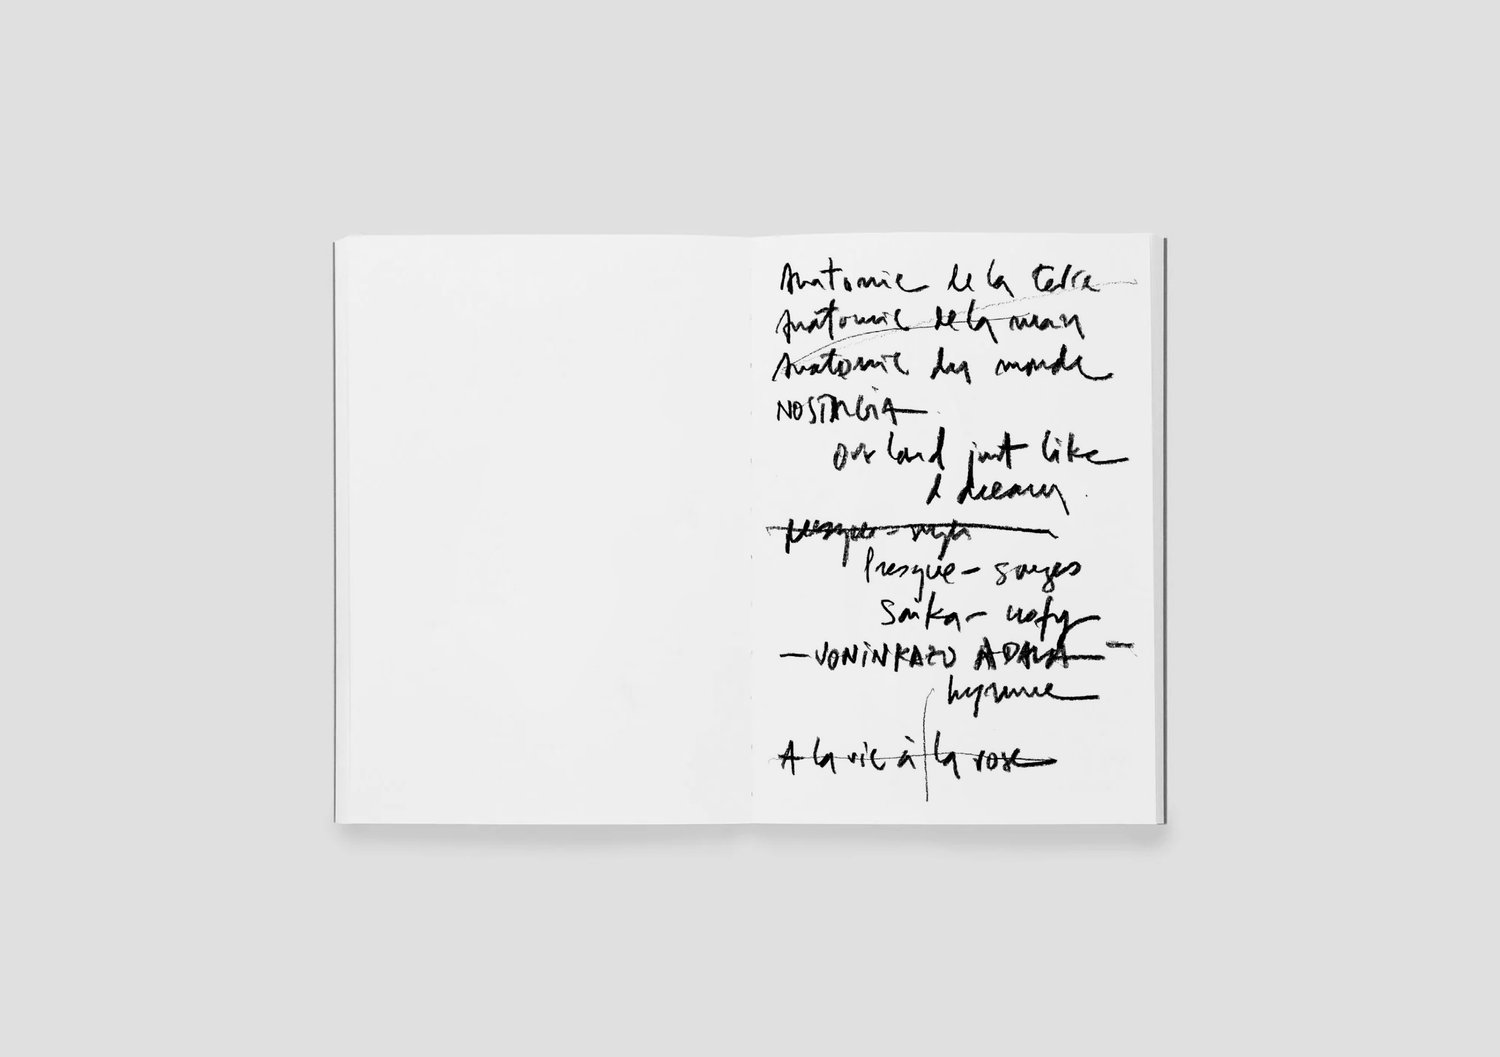 Anatomie de la terre
Anatomie de la
Anatomie du monde
NOSTALGIA
our land just like
a dream
presque-
Presque-songes
Saika-nofy
-VONINKAZO ADALA-
hymne
A la vie à la rose